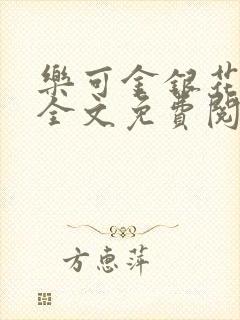 樂可金銀花
全文免費閱
方惠萍